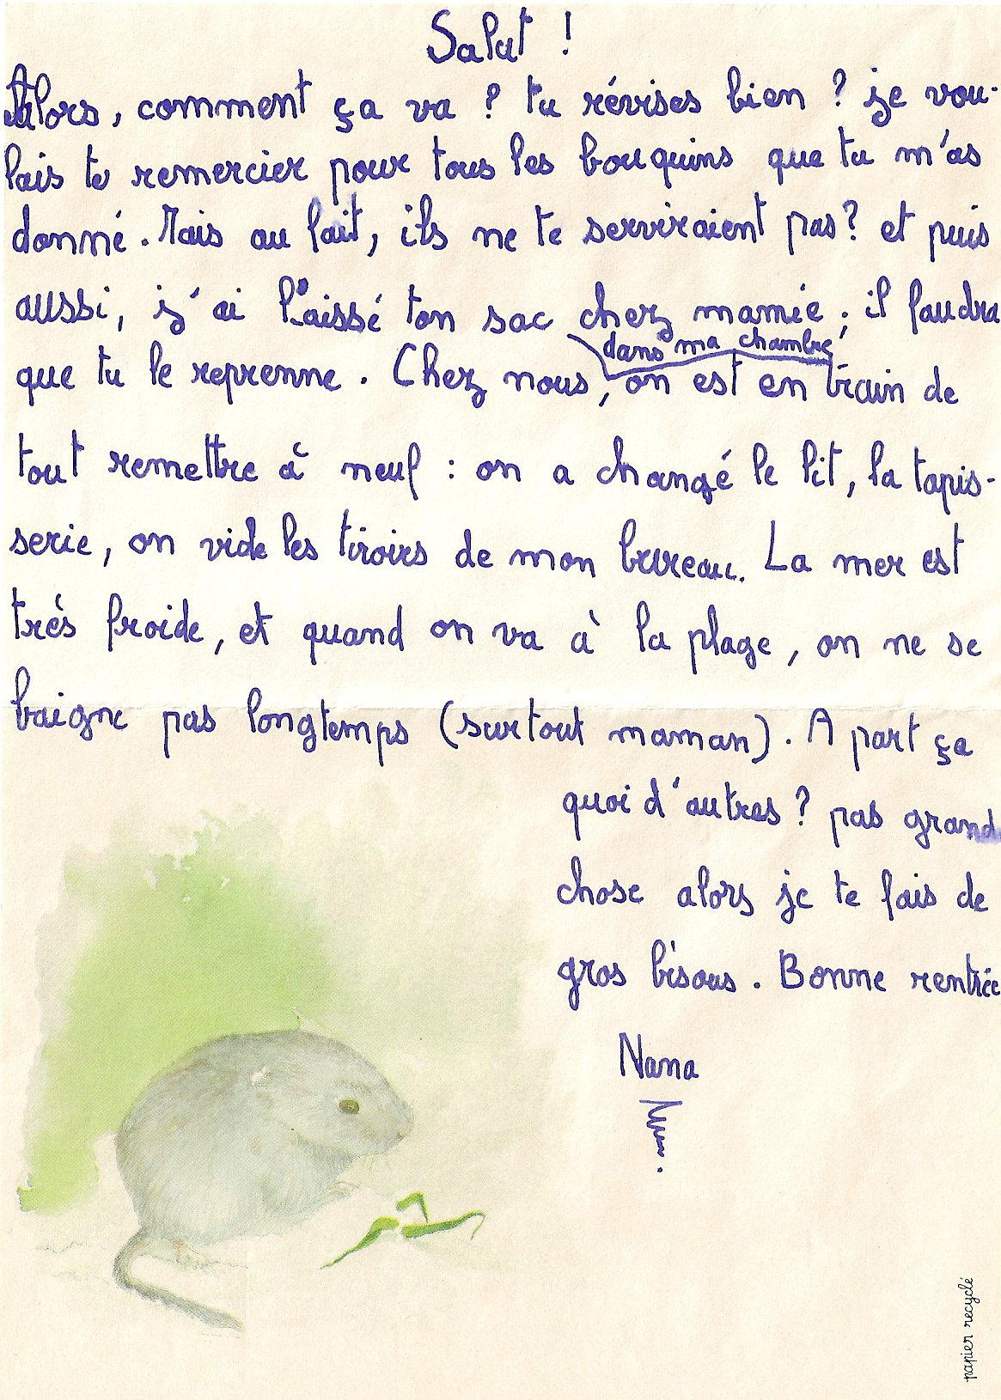 Salut !
Alors, comment ça va ? tu révises bien ? je vou-
lais te remercier pour tous les bouquins que tu m'as
donné. Mais au fait, ils ne te serviraient pas ? et puis
aussi, j'ai laissé ton sac chez mamie ; il faudra
que tu le reprenne. Chez nous, on est en train de
dans ma chambre
tout remettre à neuf : on a changé le lit, la tapis-
serie, on vide les tiroirs de mon bureau. La mer est
très froide, et quand on va à la plage, on ne se
baigne pas longtemps (surtout maman). A part ça
quoi d'autres ? pas grand
chose alors je te fais de
gros bisous. Bonne rentrée
Nana
papier recyclé